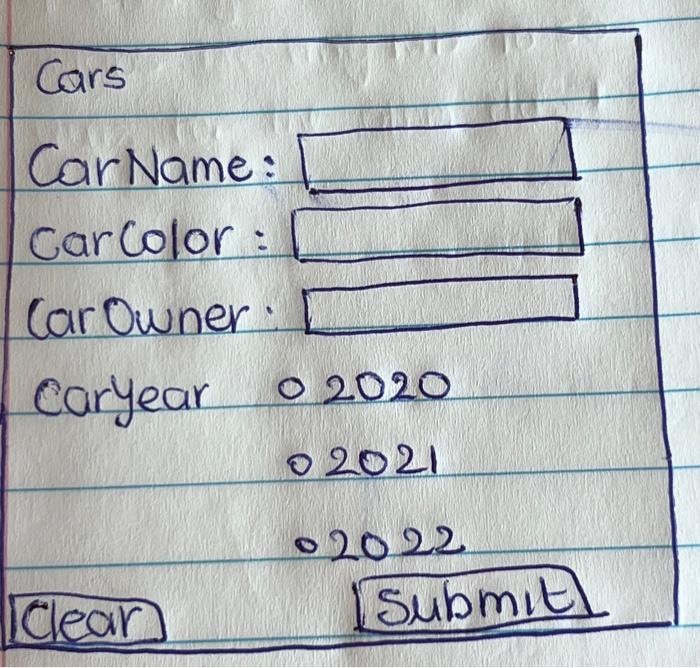 Cars
Car Name:
Car Color:
Car Owner:
Car Year 2020
2021
2022
Clear Submit